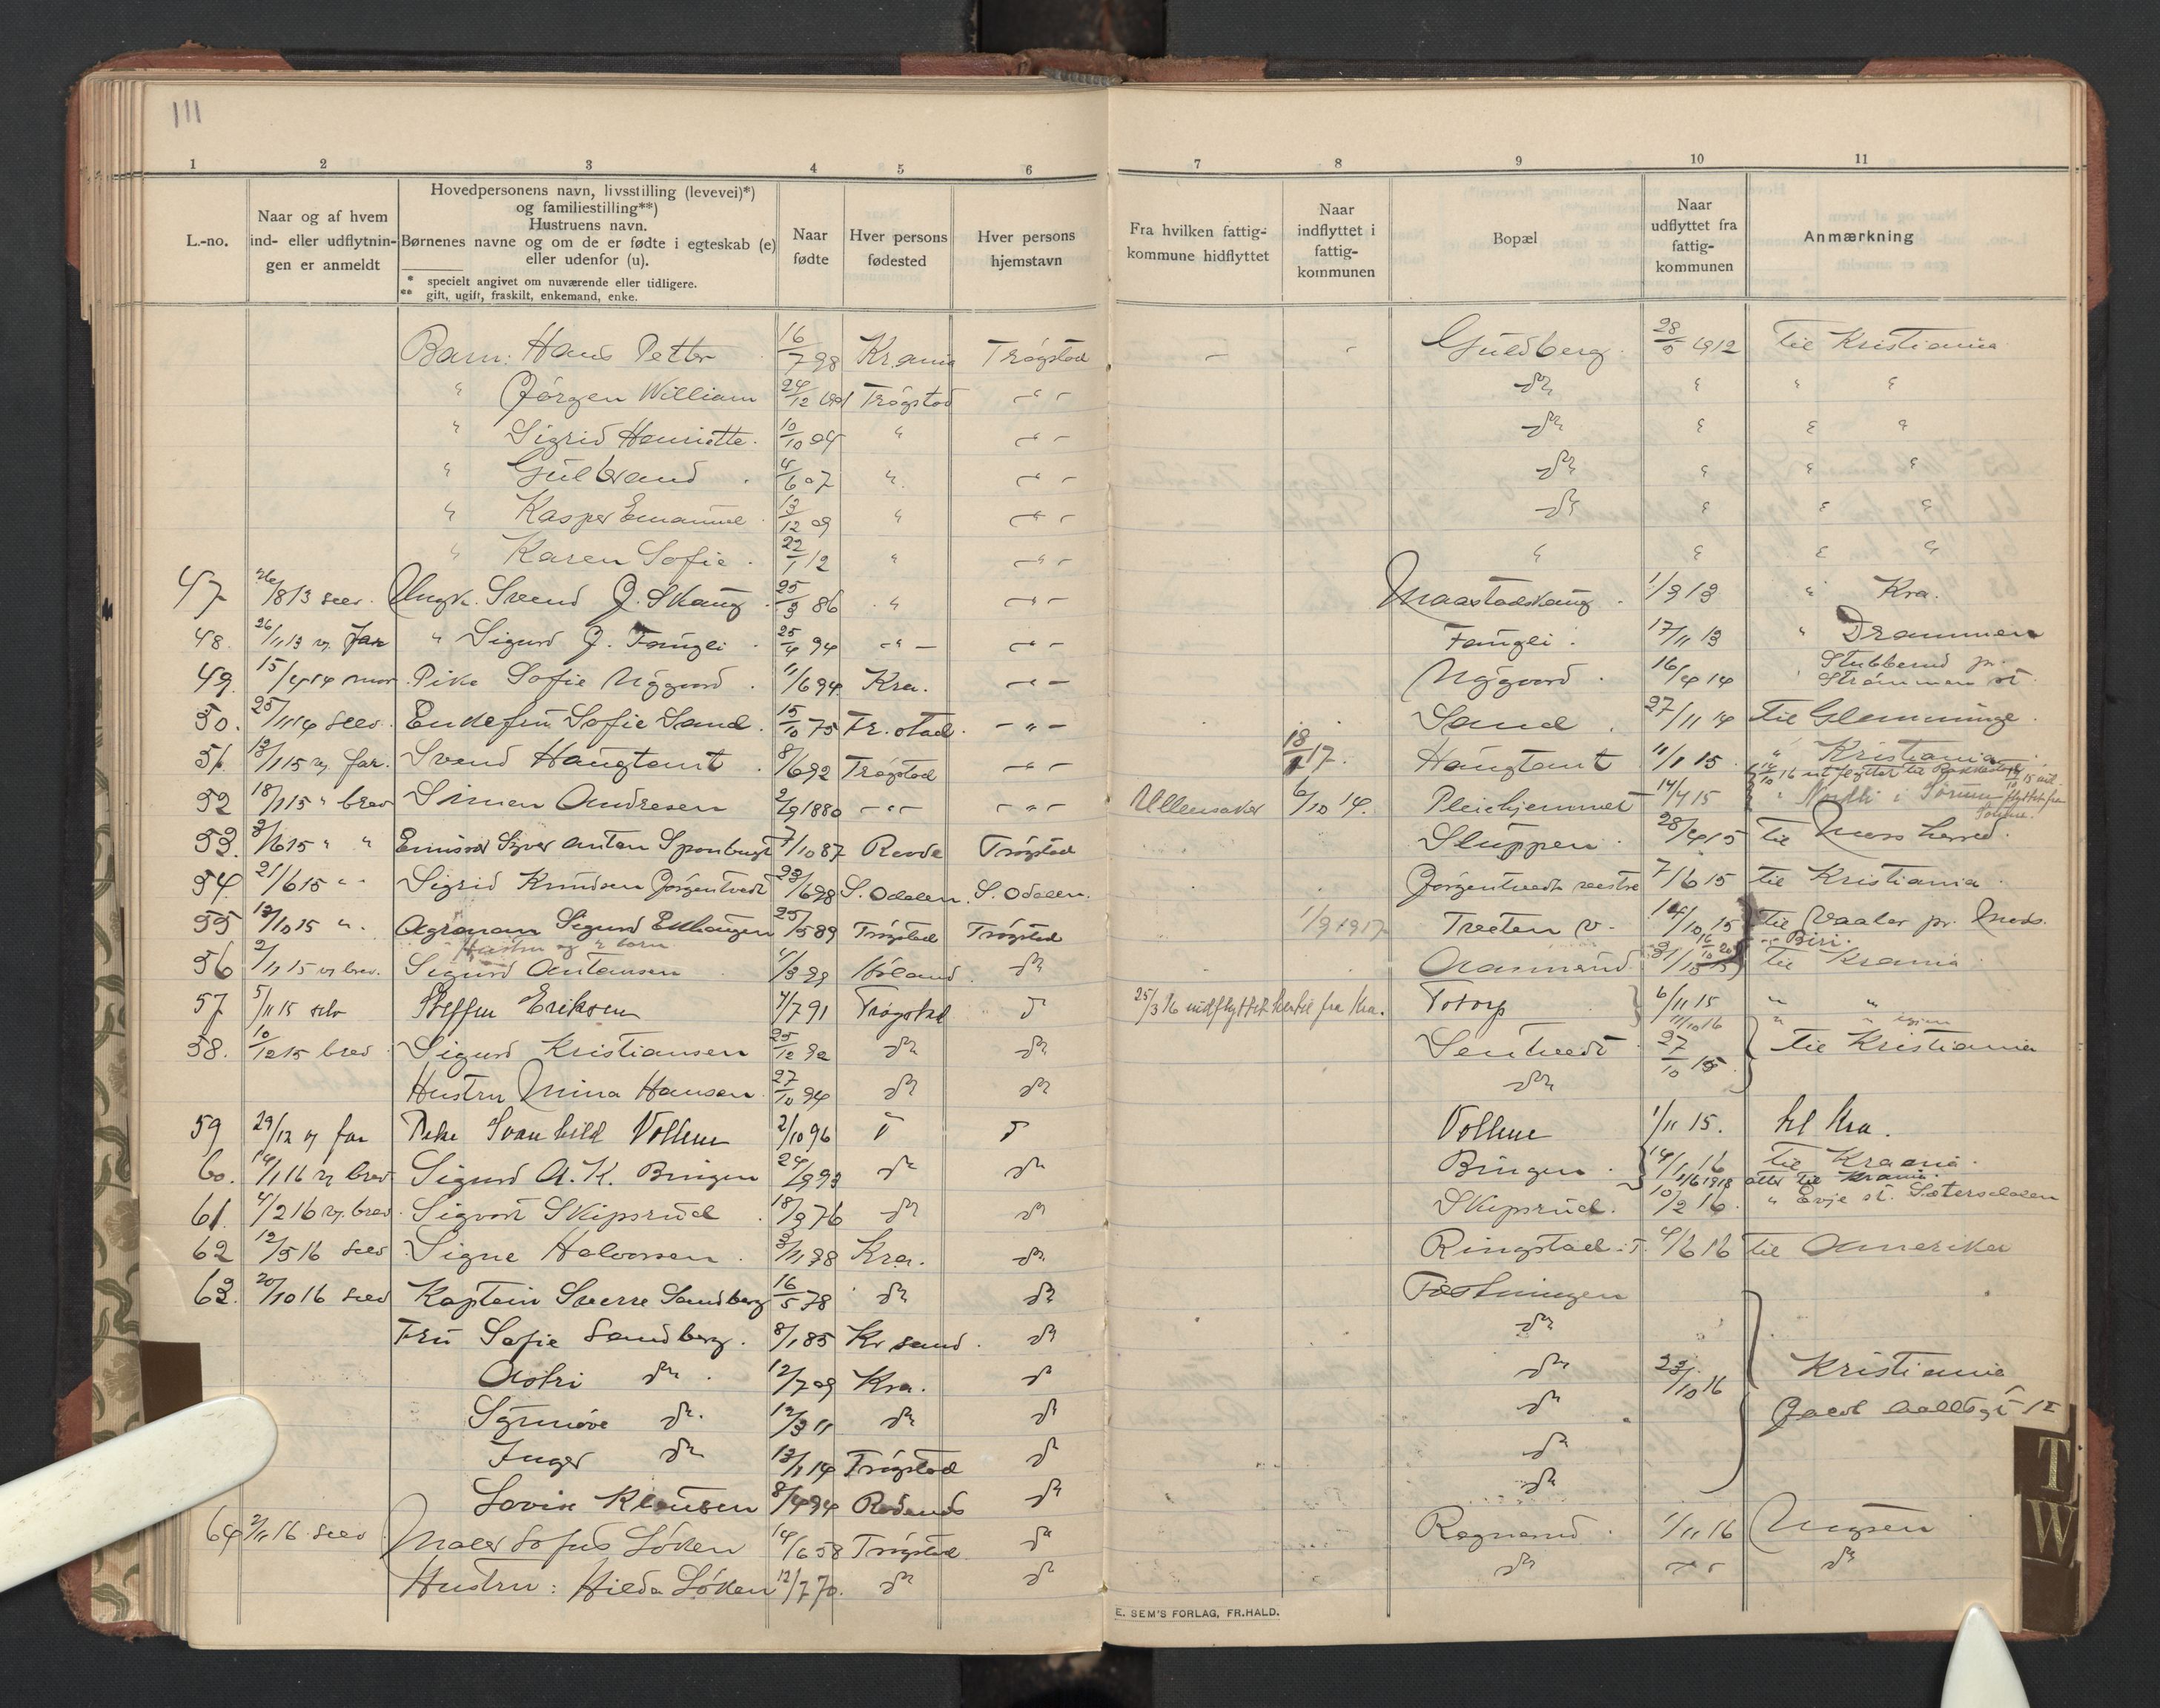 111
1 2 3 4 5 6 7 8 9 10 11
L.-no.
Naar og af hvem
ind- eller udflytnin-
gen er anmeldt
Hovedpersonens navn, livsstilling (levevei)*)
og familiestilling**)
Hustruens navn.
Børnenes navne og om de er fødte i egteskab (e)
eller udenfor (u).
* specielt angivet om nuværende eller tidligere.
** gift, ugift, fraskilt, enkemand, enke.
Naar
fødte
Hver persons
fødested
Hver persons
hjemstavn
Fra hvilken fattig-
kommune hidflyttet
Naar
indflyttet i
fattig-
kommunen
Bopæl
Naar
udflyttet fra
fattig-
kommunen
Anmærkning
Barn: Hans Petter 16/7 98 Kr.ania Trøgstad - " Guldberg 28/5 1912 Til Kristiania
" Jørgen William 24/12 1901 Trøgstad - " - do " " "
" Sigrid Henriette. 10/10 04 " - " - do " " "
" Gulbrand 4/6 07 " - " - do " " "
" Kasper Emanuel 13/12 09 " - " - do " " "
" Karen Sofie. 22/1 12 " - " - " " " "
47 26/8 13 selv. Ungk. Svend J. Skaug 25/3 86 " - " - Maastadskaug 1/9 13 " Kra.
48. 26/11 13 v. far " Sigurd J. Fangli 25/4 94 - " - - " - Fangli. 17/11 13 " Drammen
49. 15/4 14 mor Pike Sofie Nygaard 11/6 94 Kra. - " - Nygaard 16/4 14 " Stubberud pr. Strømmen st.
50. 25/11 14 selv. Enkefru Sofie Sand. 15/10 75 Fr.stad - " - Sand 27/11 14 Til Glemminge.
51. 13/1 15 v. far. Svend Haugtomt 8/6 92 Trøgstad - " - 18/1 17. Haugtomt 11/1 15 " Kristiania
52 18/1 15 " brev Simen Andresen 2/9 1880 - " - - " - Ullensaker 6/10 14. Pleiehjemmet 14/4 15 " Nordli i Sørum
53. 3/6 15 " " Emissær Syver Anton Sponbugt 7/10 87 Raade Trøgstad Sluppen 28/4 15 Til Moss herred.
54. 21/6 15 " " Sigrid Knudsen Jørgentvedt 23/6 98 S. Odalen. S. Odalen. Jørgentvedt vestre 7/6 15 til Kristiania
55 13/10 15 ". Agronom Sigurd Ekhaugen 25/5 89 Trøgstad Trøgstad 1/9 1917 Treten v. 14/10 15 til Vaaler pr. Moss.
Hustru og 2 barn 16/10 20 " Biri.
56 2/11 15 v. brev. Sigurd Antonsen 4/3 99 Høland do Aasmund 31/10 15 Til Krania
57 5/11 15 selv Steffen Eriksen 4/7 91 Trøgstad do 25/3 16 indflyttet hertil fra Kra. Totorp 6/11 15 " "
11/10 16 " " igjen
58. 10/12 15 brev Sigurd Kristiansen 25/12 92 do do Sentvedt 27/10 15 Til Kristiania
Hustru Mina Hansen 27/10 94 do do do
59 29/12 v far Pike Svanhild Vollene 2/10 96 do do Vollene 1/11 15. til Kra.
60. 14/1 16 v brev Sigurd A. K. Bingen 24/9 93 do do Bingen 14/1 16 Til Krania.
1/6 1918 atter til Krania.
61. 4/2 16 v. brev. Sigvart Skipsrud 18/9 76 do do Skipsrud. 10/2 16. " Evje st. Sætersdalen
62 12/5 16 selv Signe Halvorsen 3/11 98 Kra. do Ringstad: T. 4/6 16 til Amerika
63. 20/10 16 selv Kaptein Sverre Sandberg 16/5 78 do do Festningen
Fru Sofie Sandberg. 8/1 85 Kr sand. do do
Astri do. 12/7 09 Kra. do do 23/10 16 Kristiania
Synnøve do. 12/3 11 do do do
Inger do 13/1 14 Trøgstad do do
Lovise Klausen 8/4 94 Rødenes do do
64 2/11 16 selv Maler Sofus Løken 14/6 58 Trøgstad do Ragnarud 1/11 16 Mysen
Hustru: Hilda Løken 12/7 70. do do do " do
E. SEM'S FORLAG, FR.HALD.
T
W